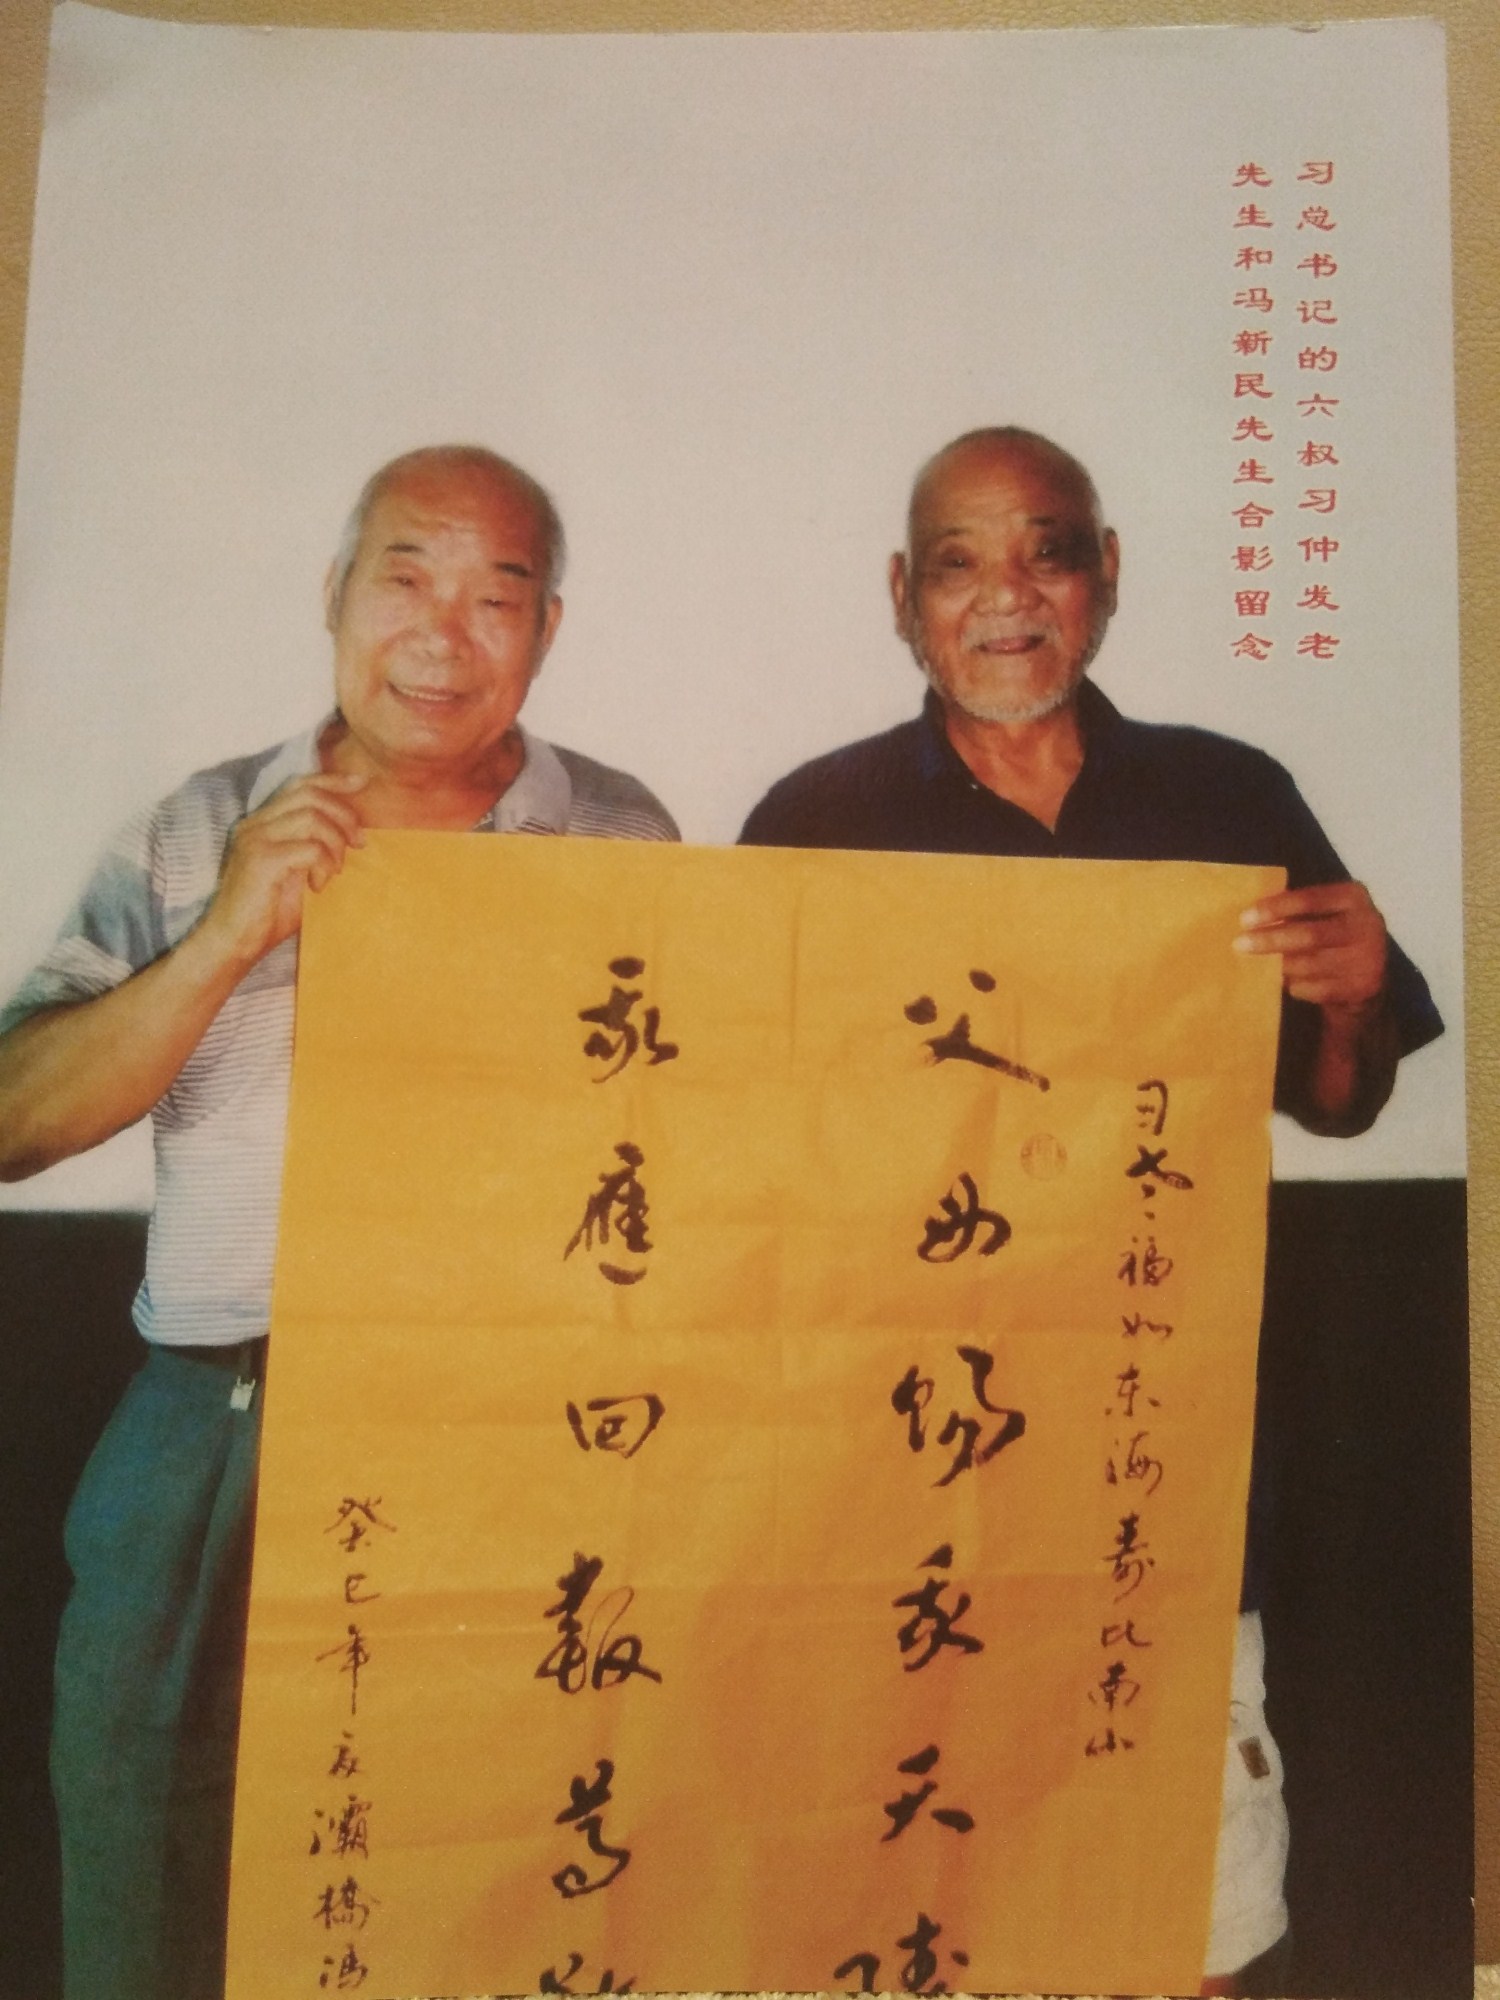 习总书记的六叔习仲发老
先生和冯新民先生合影留念
习老福如东海寿比南山
父母赐我天
我應回報
癸巳年 灞橋冯